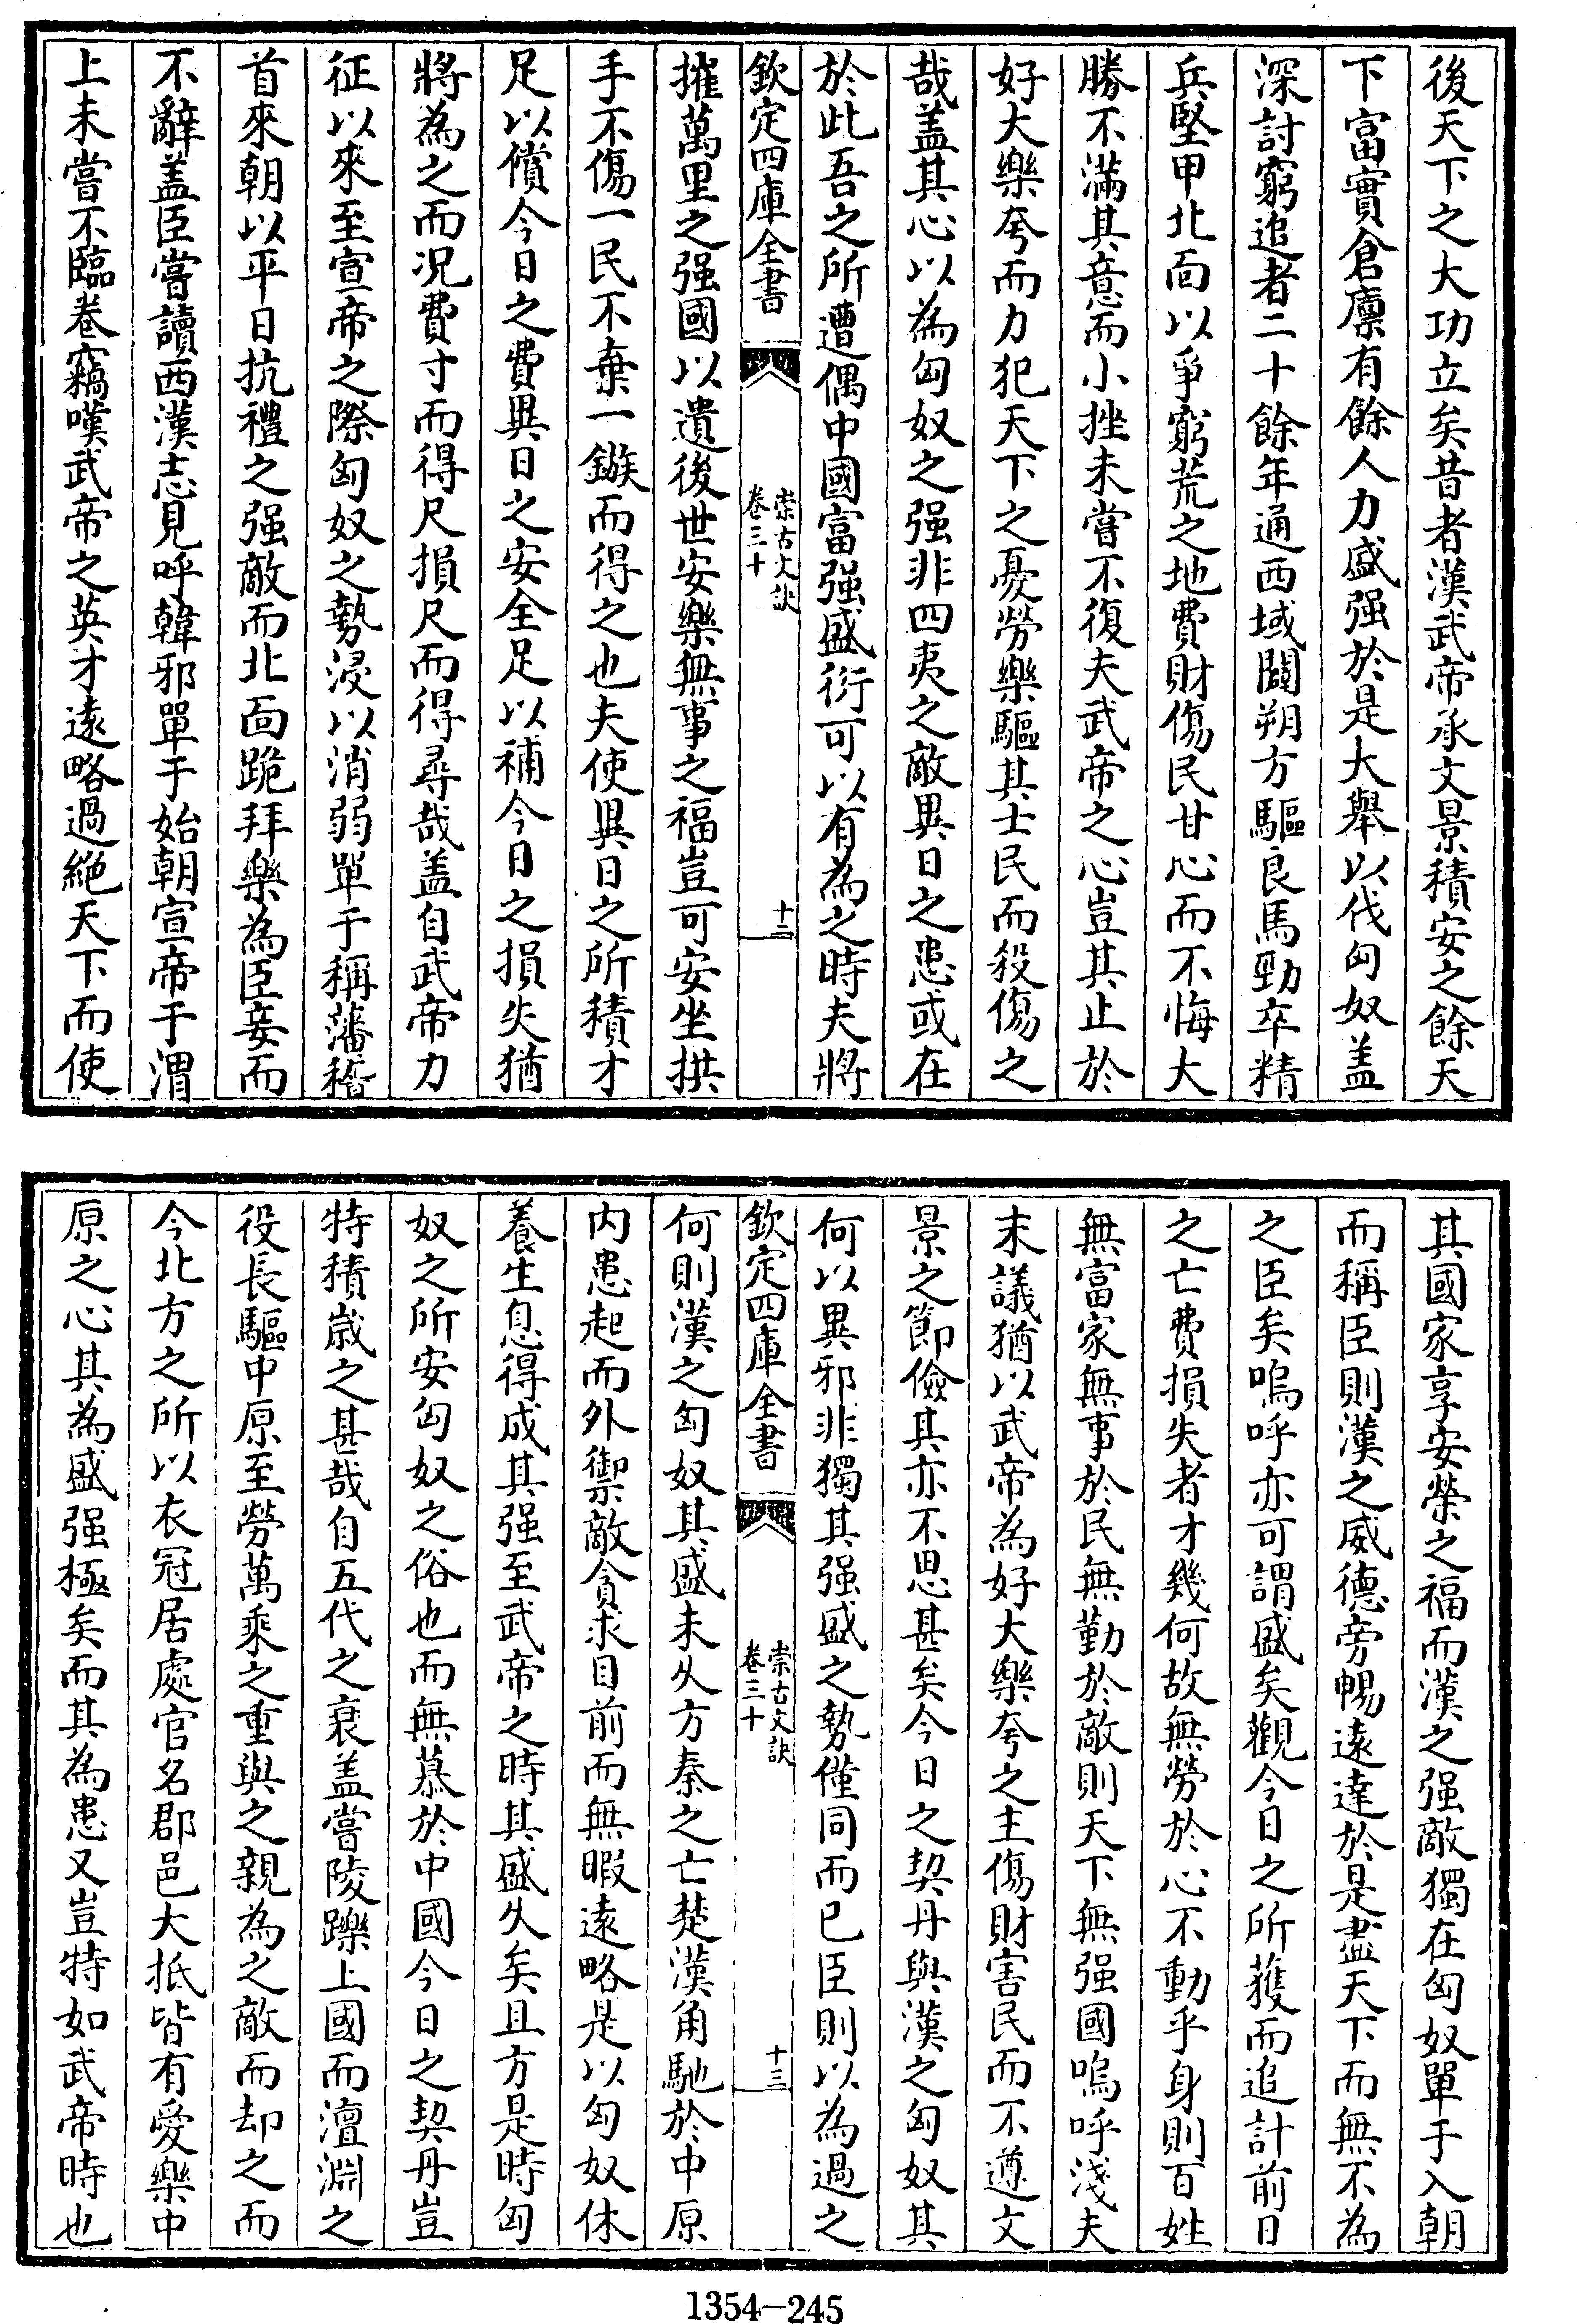 後天下之大功立矣昔者漢武帝承文景積安之餘天
下富實倉廩有餘人力盛强於是大舉以伐匈奴盖
深討窮追者二十餘年通西域闢朔方驅良馬勁卒精
兵堅甲北面以爭窮荒之地費財傷民甘心而不悔大
勝不滿其意而小挫未嘗不復夫武帝之心豈其止於
好大樂夸而力犯天下之憂勞樂驅其士民而殺傷之
哉盖其心以為匈奴之强非四夷之敵異日之患或在
於此吾之所遭偶中國富强盛衍可以有為之時夫將
欽定四庫全書
崇古文訣
卷三十
十二
摧萬里之强國以遺後世安樂無事之福豈可安坐拱
手不傷一民不棄一鏃而得之也夫使異日之所積才
足以償今日之費異日之安全足以補今日之損失猶
將為之而况費寸而得尺損尺而得尋哉盖自武帝力
征以來至宣帝之際匈奴之勢浸以消弱單于稱藩稽
首來朝以平日抗禮之强敵而北面跪拜樂為臣妾而
不辭盖臣嘗讀西漢志見呼韓邪單于始朝宣帝于渭
上未嘗不臨卷竊嘆武帝之英才遠略過絶天下而使
其國家享安榮之福而漢之强敵獨在匈奴單于入朝
而稱臣則漢之威德旁暢遠達於是盡天下而無不為
之臣矣嗚呼亦可謂盛矣觀今日之所獲而追計前日
之亡費損失者才幾何故無勞於心不動乎身則百姓
無富家無事於民無勤於敵則天下無强國嗚呼淺夫
末議猶以武帝為好大樂夸之主傷財害民而不遵文
景之節儉其亦不思甚矣今日之契丹與漢之匈奴其
何以異邪非獨其强盛之勢僅同而已臣則以為過之
欽定四庫全書
崇古文訣
卷三十
十三
何則漢之匈奴其盛未久方秦之亡楚漢角馳於中原
内患起而外禦敵貪求目前而無暇遠略是以匈奴休
養生息得成其强至武帝之時其盛久矣且方是時匈
奴之所安匈奴之俗也而無慕於中國今日之契丹豈
特積嵗之甚哉自五代之衰盖嘗陵躒上國而澶淵之
役長驅中原至勞萬乘之重與之親為之敵而却之而
今北方之所以衣冠居處官名郡邑大抵皆有愛樂中
原之心其為盛强極矣而其為患又豈特如武帝時也
1354-245